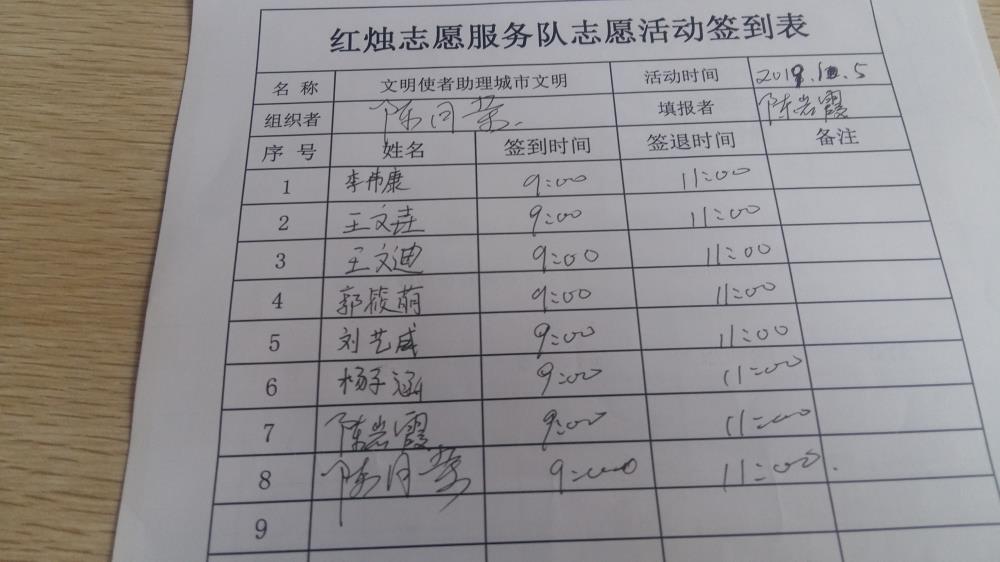 红烛志愿服务队志愿活动签到表
名 称 文明使者助理城市文明 活动时间
组织者 陈月荣 填报者 陈岩霞
序 号 姓名 签到时间 签退时间 备注
1 李伟康 9:00 11:00
2 王文垚 9:00 11:00
3 王文迪 9:00 11:00
4 郭筱萌 9:00 11:00
5 刘艺成 9:00 11:00
6 杨子涵 9:00 11:00
7 陈岩霞 9:00 11:00
8 陈月荣 9:00 11:00
9